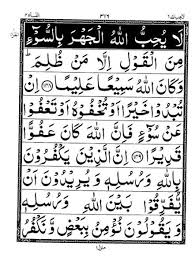 لَا يُحِبُّ اللّٰهُ الْجَهْرَ بِالسُّوْٓءِ
مِنَ الْقَوْلِ اِلَّا مَنْ ظُلِمَ ؕ
وَكَانَ اللّٰهُ سَمِيْعًا عَلِيْمًا ﴿۱۴۸﴾ اِنْ
تُبْدُوْا خَيْرًا اَوْ تُخْفُوْهُ اَوْ تَعْفُوْا
عَنْ سُوْٓءٍ فَاِنَّ اللّٰهَ كَانَ عَفُوًّا
قَدِيْرًا ﴿۱۴۹﴾ اِنَّ الَّذِيْنَ يَكْفُرُوْنَ
بِاللّٰهِ وَرُسُلِهٖ وَيُرِيْدُوْنَ اَنْ
يُّفَرِّقُوْا بَيْنَ اللّٰهِ وَرُسُلِهٖ
وَيَقُوْلُوْنَ نُؤْمِنُ بِبَعْضٍ وَّنَكْفُرُ